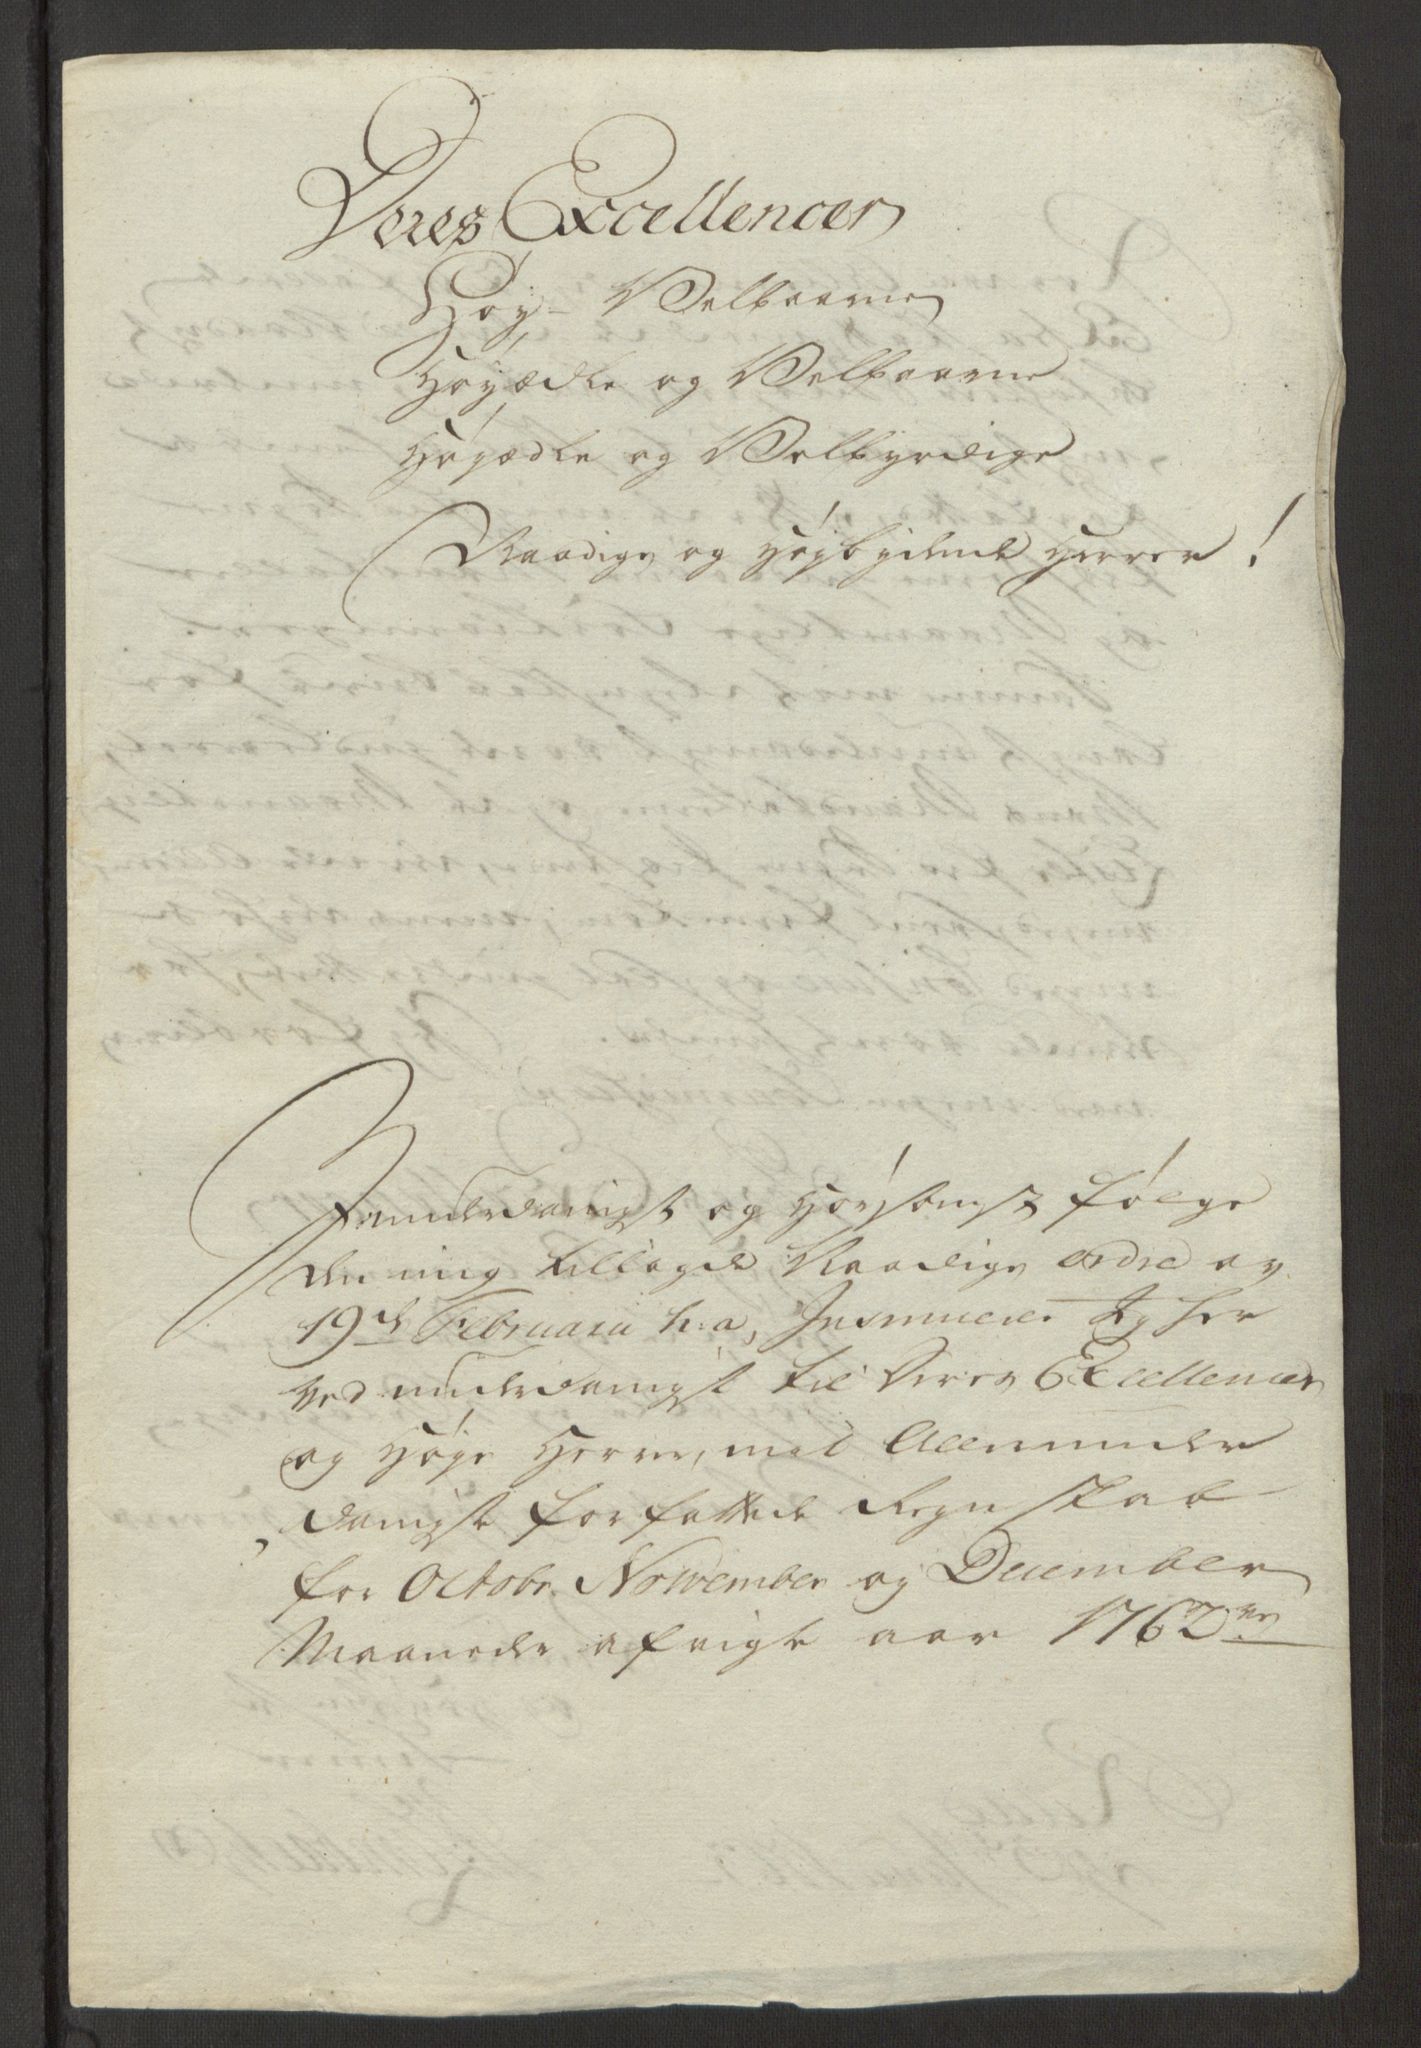 Deres Excellencer
Høy- Velbaarne
Høyædle og Velbaarne
Høyædle og Velbyrdige
Naadige og Høygbydende Herrer!
I underdanigst og Hørsomst følge
den mig tillagde Naadige ordre av
19de Februarii h: a, Insinuerer Jeg her
ved underdanigst til Deres Excellencer
og Høye Herrer, med Allerunder
danigst forfattede Regnskab
for Octobr. November og December
Maaneder afvigte aar 1762